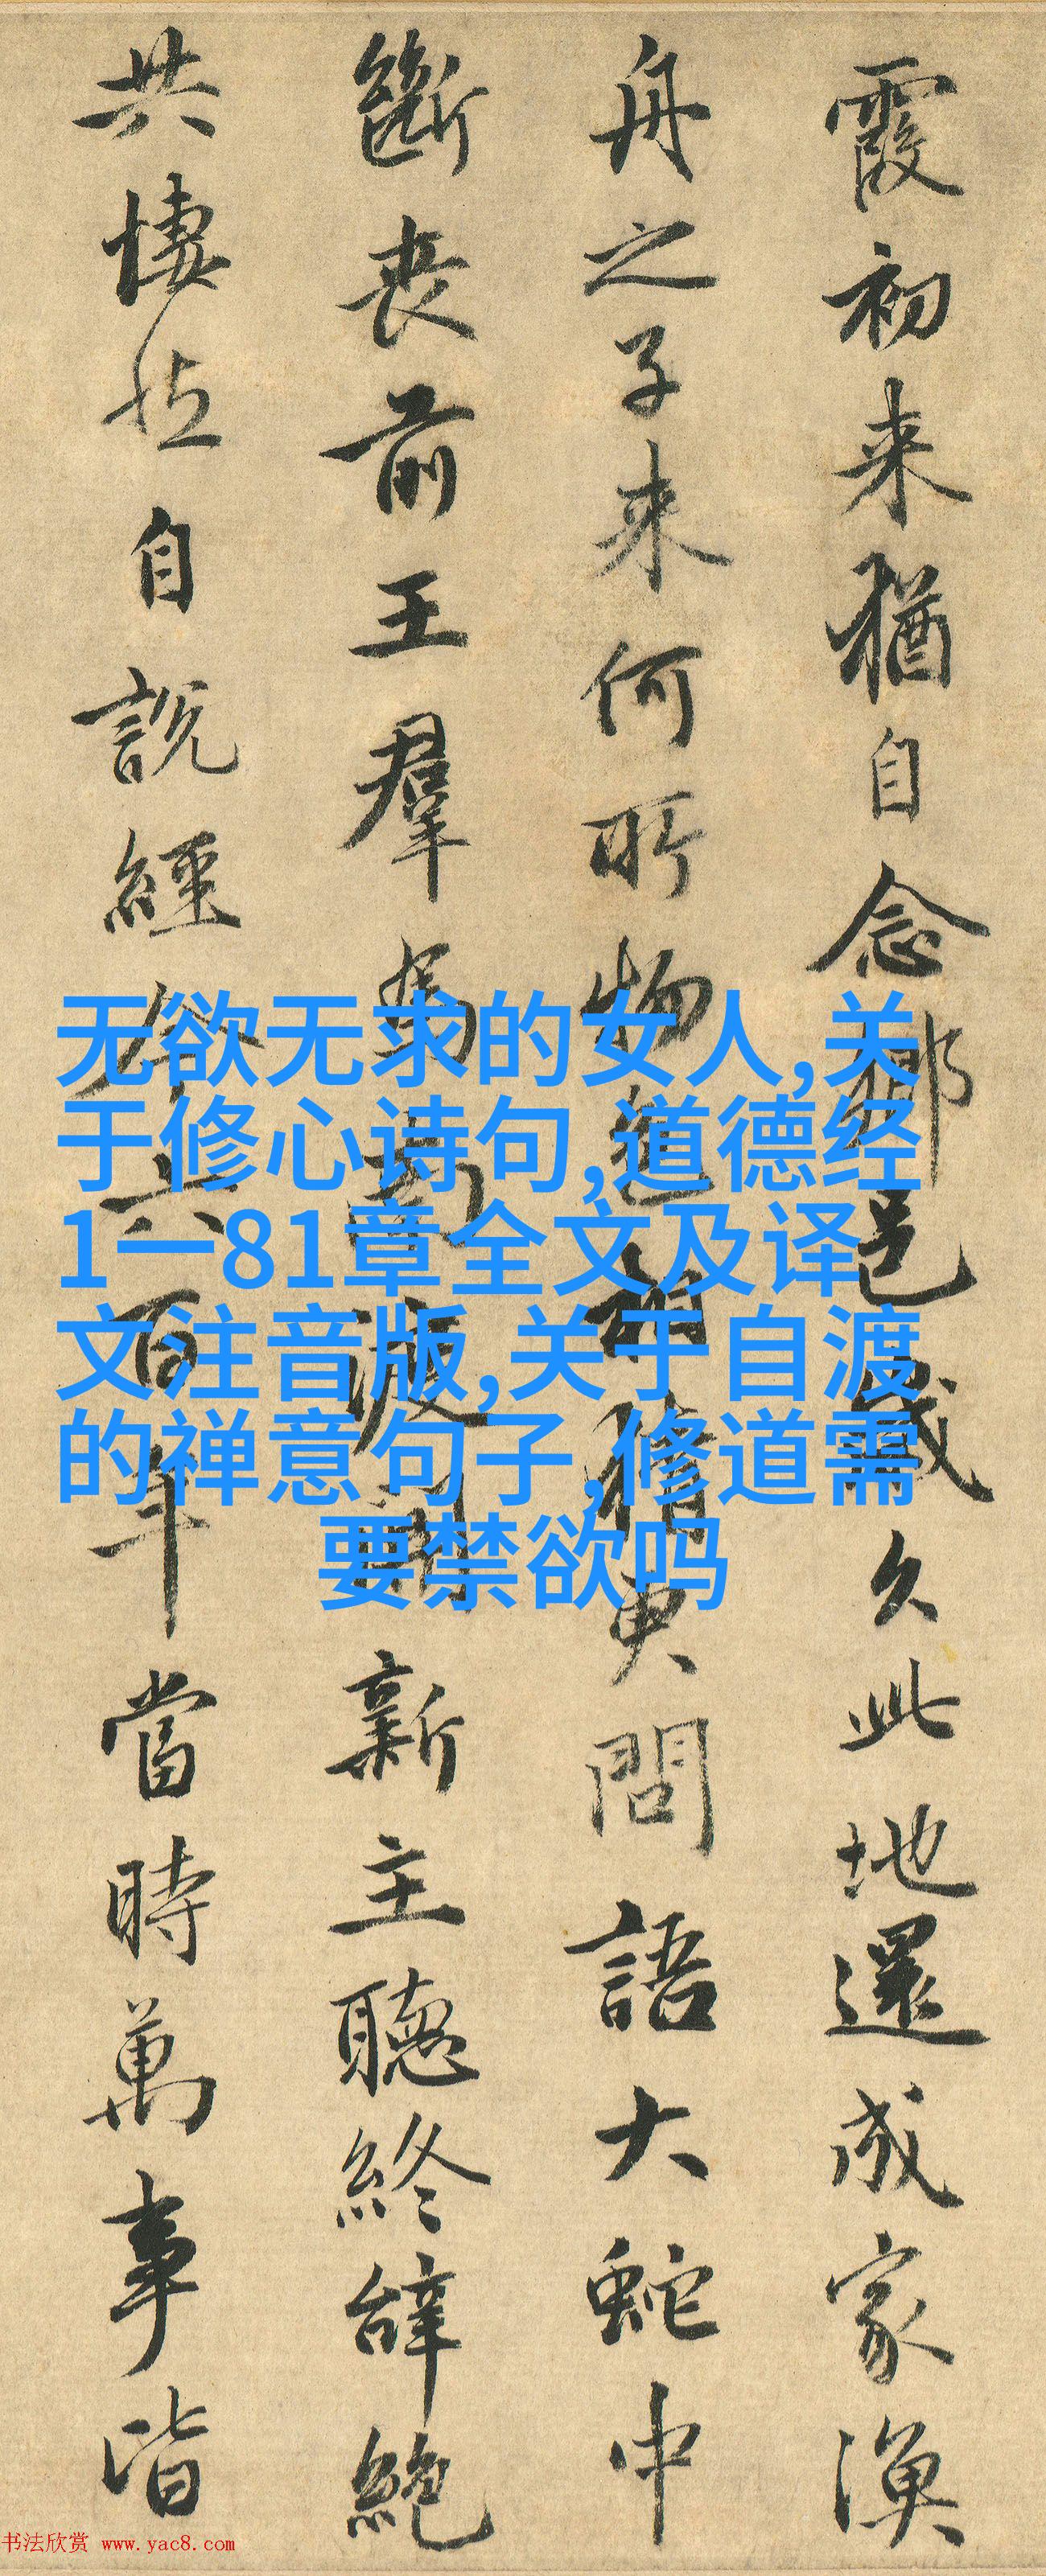 霞初来猶自念鄉邑歲久此地還成家漁
舟之子来何所物色相猜更問語大蛇中
斷喪前王羣馬南渡開新主聽終辭絶
共悽然自說經今六百年當時萬事皆
无欲无求的女人,关
于修心诗句,道德经
1一81章全文及译
文注音版,关于自渡
的禅意句子,修道需
要禁欲吗
书法欣赏 www.yac8.com